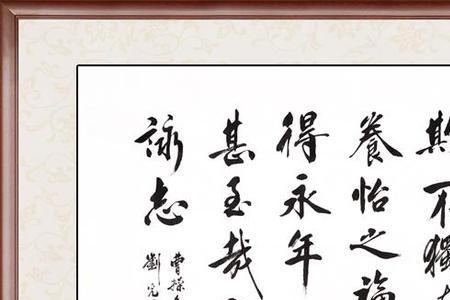 期不獨
養怡之福
得永年
甚至哉
詠志
曹操
劉